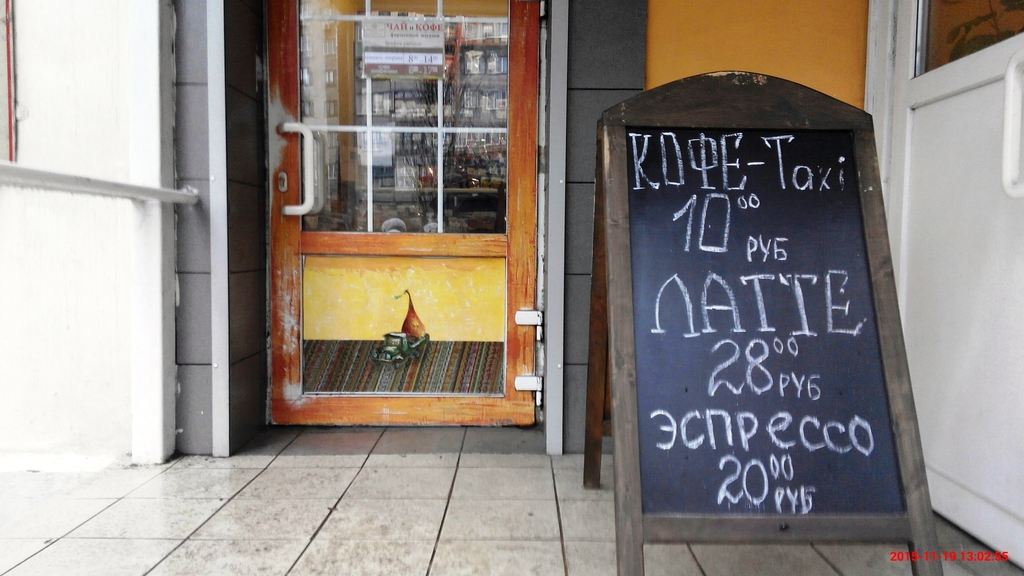 ЧАЙ и КОФЕ
КОФЕ-Taxi
10⁰⁰
РУБ
ЛАТТЕ
28⁰⁰
РУБ
ЭСПРЕССО
20⁰⁰
РУБ
2015-11-19 13:02:55